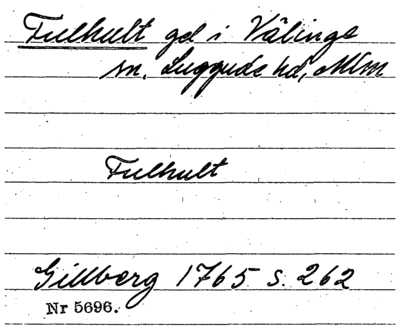 Fulhult gd i Välinge
sn. Luggude hd, Mlm
Fulhult
Gillberg 1765 s. 262
Nr 5696.